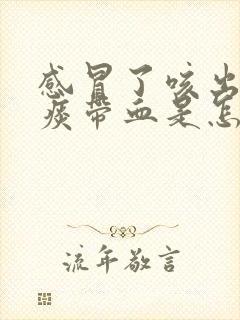 感冒了咳出
痰带血是怎
流年敬言